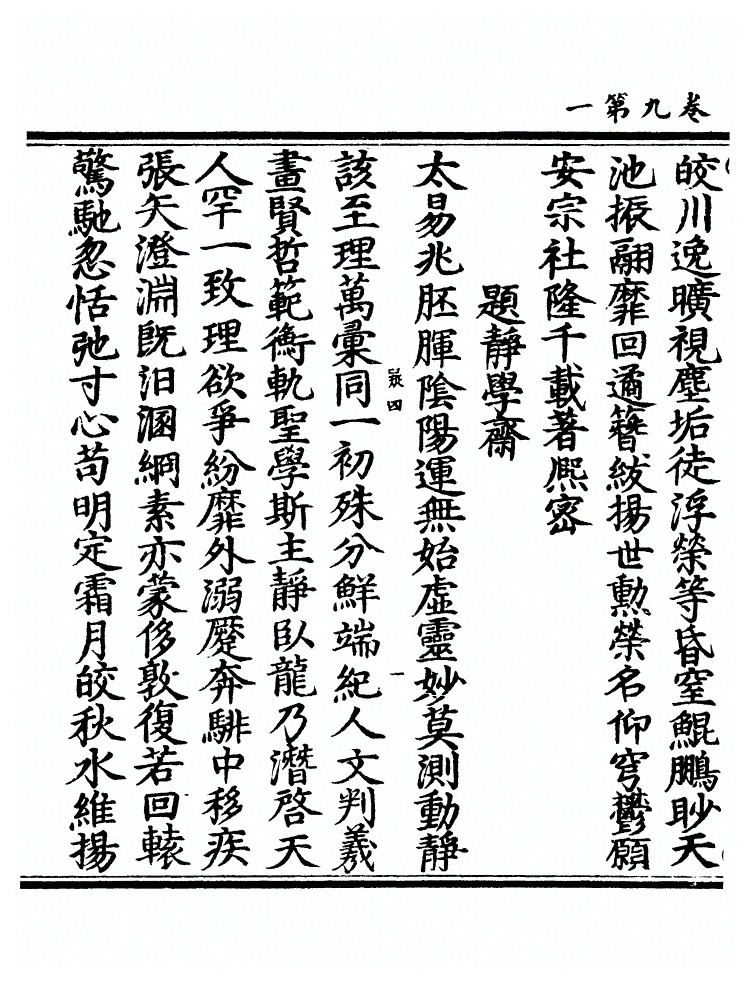 卷九第一
皎川逸曠視塵垢徒浮榮等昏窒鯤鵬眇天
池振翮靡回遹簪紱揚世勲榮名仰穹鬱願
安宗社隆千載著熙密
題靜學齋
太易兆胚腪陰陽運無始虛靈妙莫測動靜
該至理萬彙同一初殊分鮮端紀人文判羲
畫賢哲範衡軌聖學斯主靜臥龍乃潛啓天
人罕一致理欲爭紛靡外溺蹙奔騑中移疾
張矢澄淵旣汩溷綱素亦蒙侈敦復若回轅
驚馳忽恬弛寸心苟明定霜月皎秋水維揚
四
一